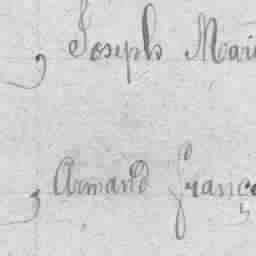 Joseph Mari
Armand Franço